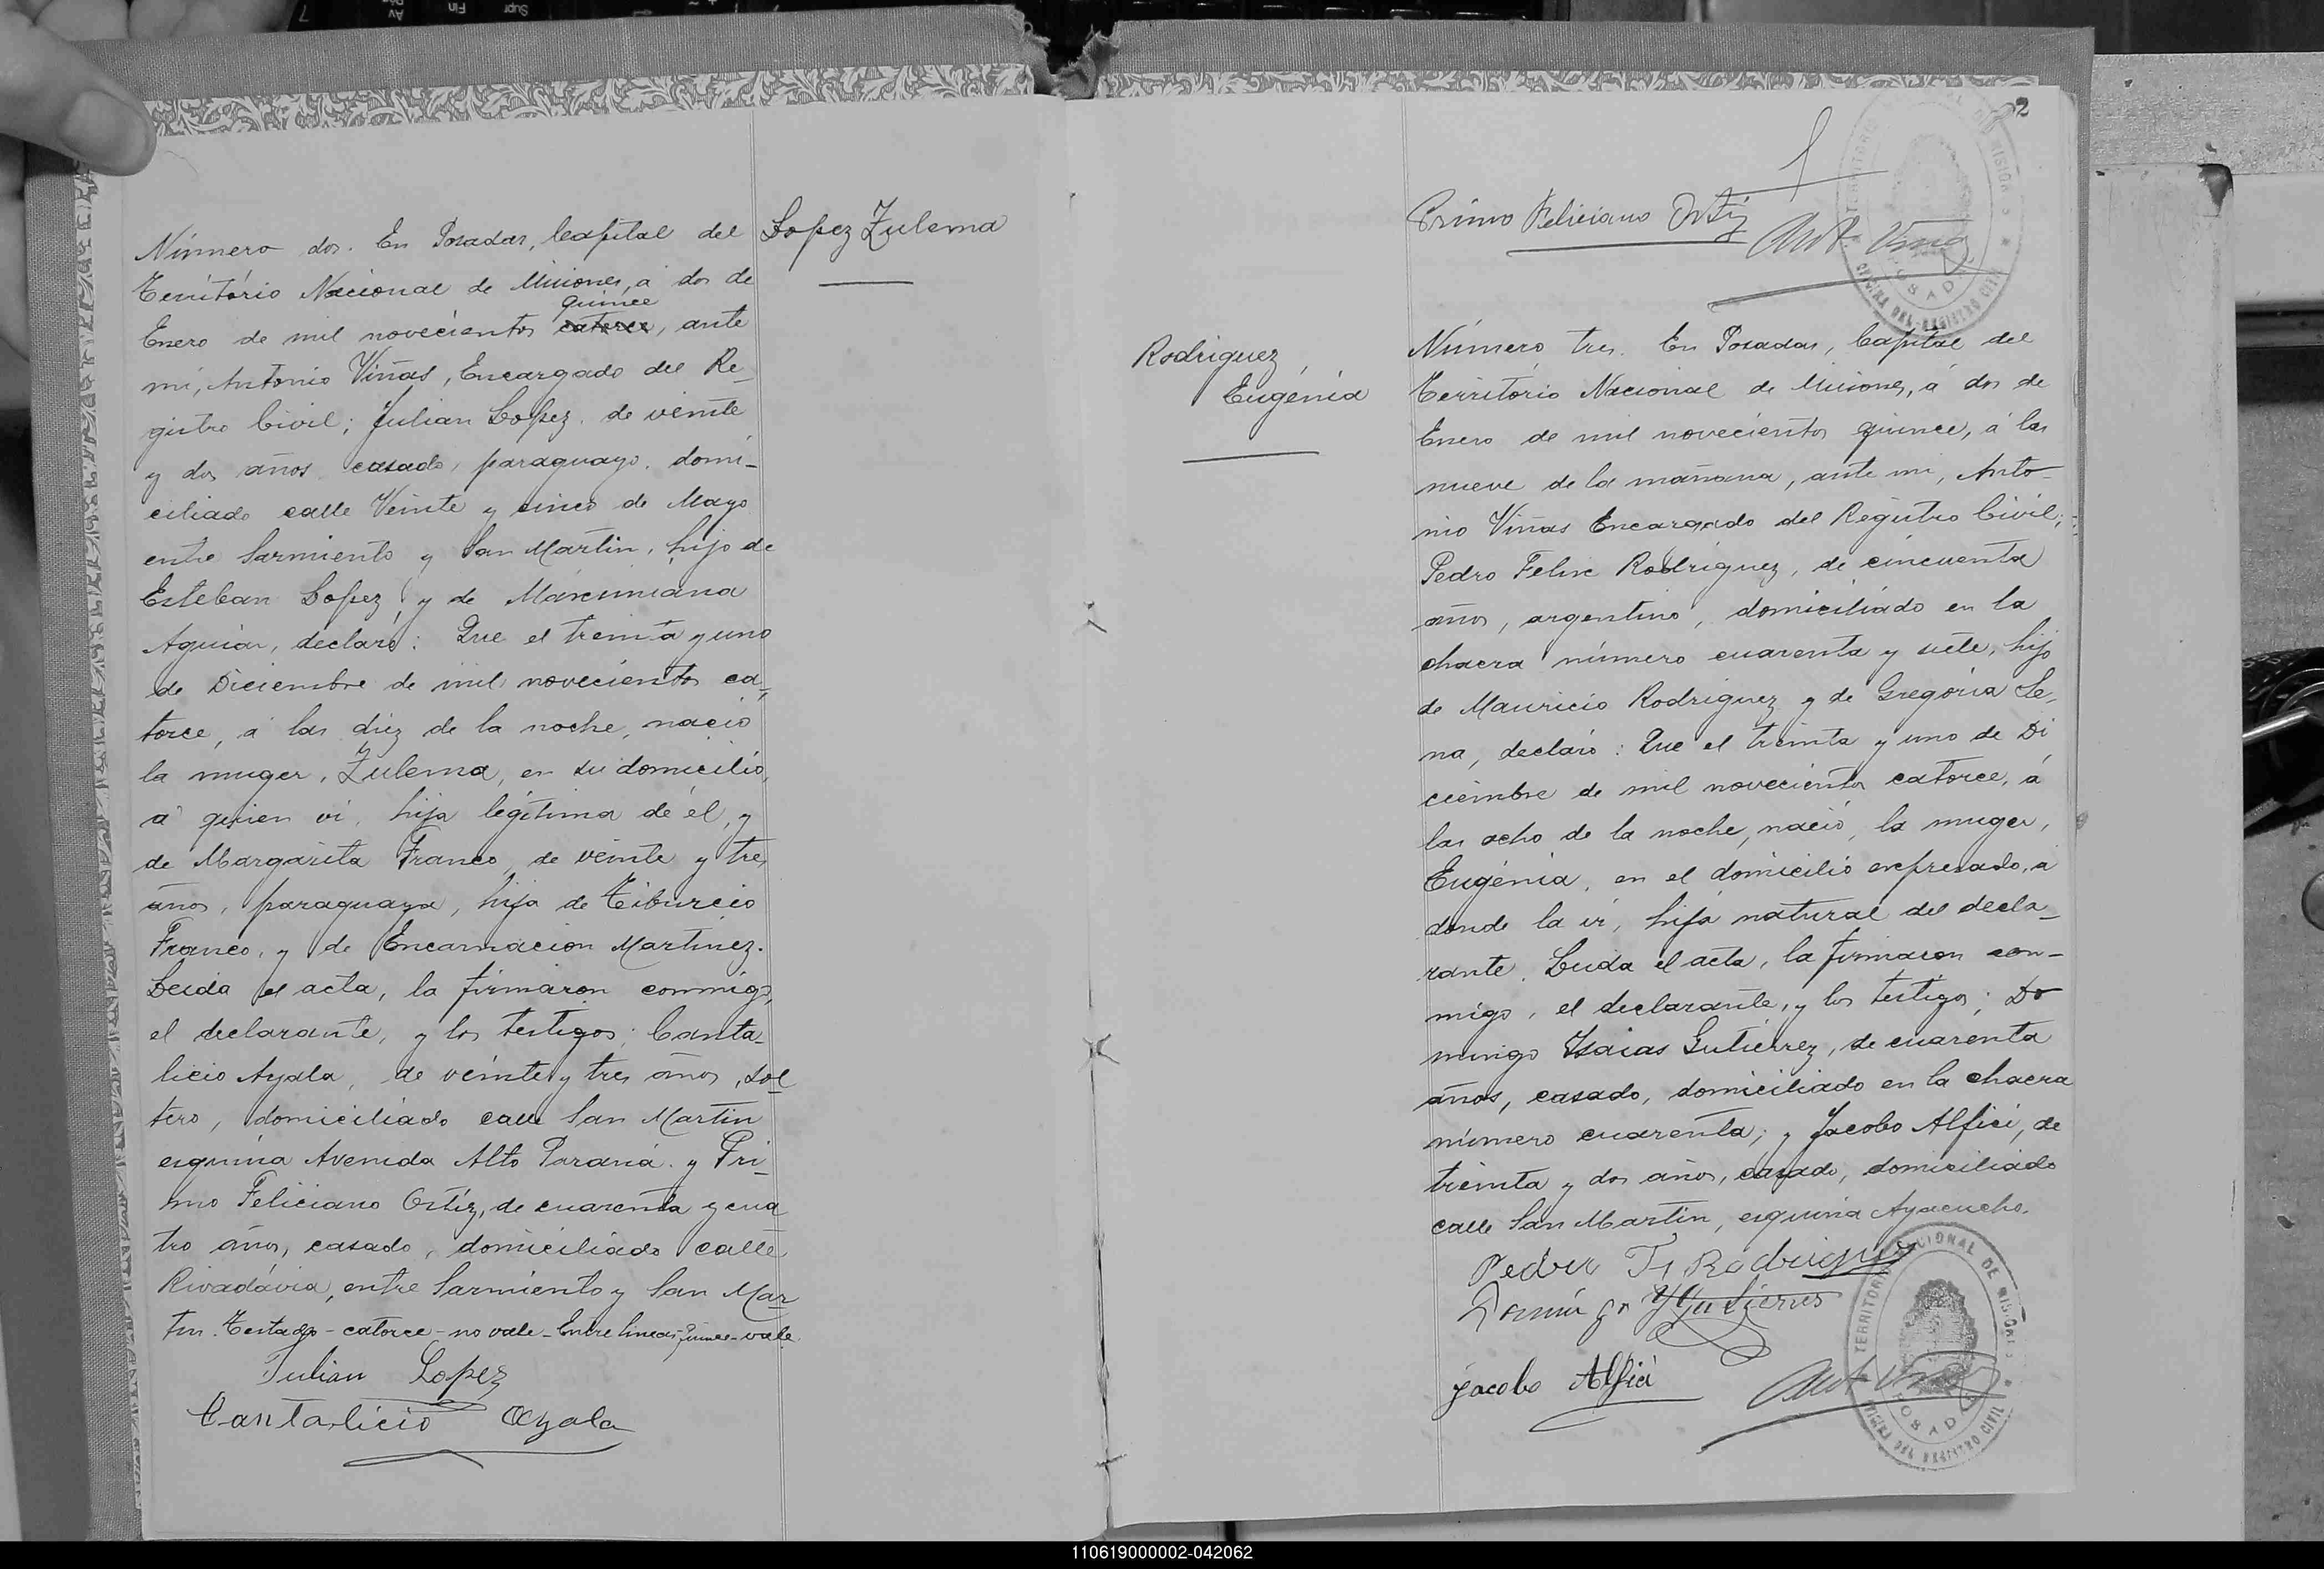 Lopez Zulema
Número dos. En Posadas, Capital del
Territorio Nacional de Misiones, á dos de
quince
Enero de mil novecientos catorce, ante
mi, Antonio Viñas, Encargado del Re_
gistro Civil; Julian Lopez, de veinte
y dos años, casado, paraguayo, domi_
ciliado calle Veinte y cinco de Mayo
entre Sarmiento y San Martin, hijo de
Esteban Lopez, y de Marcimiana
Aguiar, declaró: Que el treinta y uno
de Diciembre de mil novecientos ca_
torce, á las diez de la noche, nació
la muger, Zulema, en su domicilio,
á quien vi, hija legítima de él, y
de Margarita Franco, de veinte y tres
años, paraguaya, hija de Tiburcio
Franco, y de Encarnacion Martinez.
Leida el acta, la firmaron conmigo,
el declarante, y los testigos; Canta_
licio Ayala, de veinte y tres años, sol
tero, domiciliado calle San Martin
esquina Avenida Alto Paraná, y Pri_
mo Feliciano Ortíz, de cuarenta y cua
tro años, casado, domiciliado calle
Rivadávia, entre Sarmiento y San Mar_
tin. Testado - catorce - no vale - Entre lineas - quince - vale
Julian Lopez
Cantalicio Ayala
2
Primo Feliciano Ortiz
Ant Viñas
TERRITORIO NACIONAL DE MISIONES
POSADAS
OFICINA DEL REGISTRO CIVIL
Rodriguez,
Eugénia
Número tres. En Posadas, Capital del
Território Nacional de Misiones, á dos de
Enero de mil novecientos quince, á las
nueve de la mañana, ante mi, Anto_
nio Viñas Encargado del Registro Civil;
Pedro Felix Rodriguez, de cincuenta
años, argentino, domiciliado en la
chacra número cuarenta y siete, hijo
de Mauricio Rodriguez y de Gregoria Le_
na, declaró: Que el treinta y uno de Di
ciembre de mil novecientos catorce, á
las ocho de la noche, nació, la muger,
Eugénia, en el domicilio expresado, á
donde la ví, hija natural del decla_
rante. Leida el acta, la firmaron con_
migo, el declarante, y los testigos; Do
mingo Isaias Gutierrez, de cuarenta
años, casado, domiciliado en la chacra
número cuarenta; y Jacobo Alfici, de
treinta y dos años, casado, domiciliado
calle San Martin, esquina Ayacucho.
Pedro F. Rodriguez
Domingo Y Gutierres
Jacobo Alfici
Ant Viñas
TERRITORIO NACIONAL DE MISIONES
POSADAS
OFICINA DEL REGISTRO CIVIL
110619000002-042062